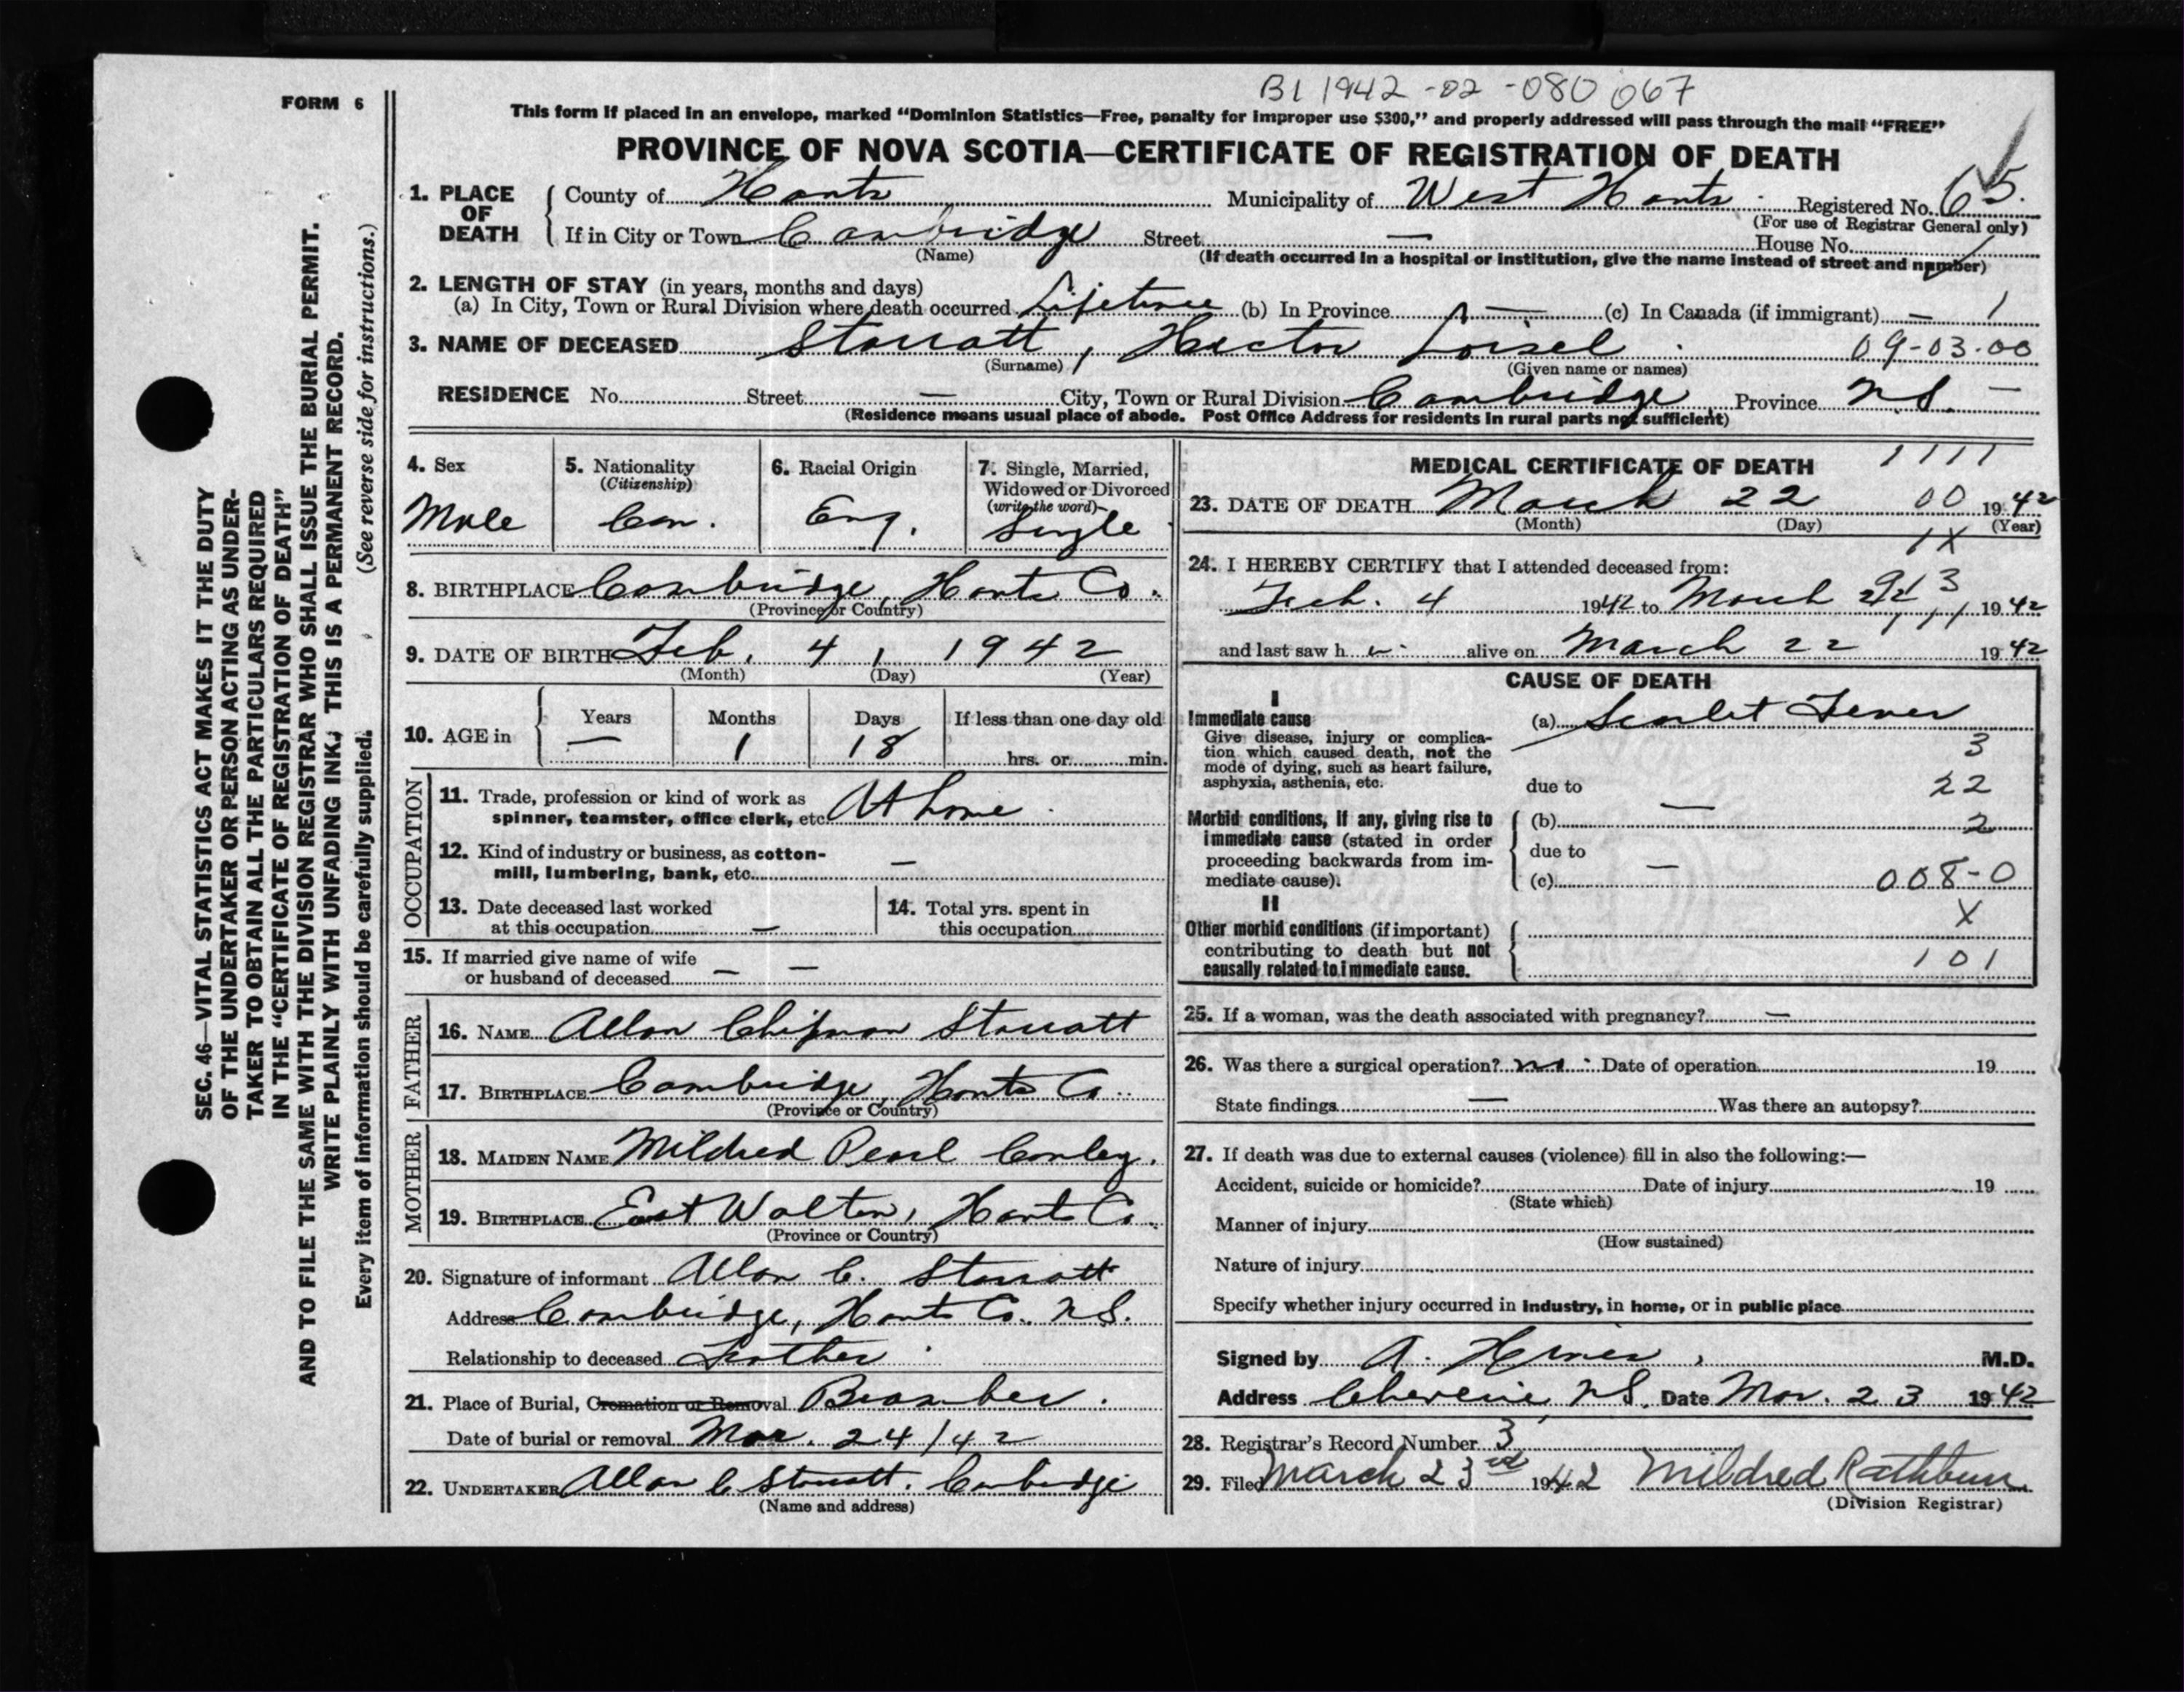 BL 1942 -02 -080 067
FORM 6
This form if placed in an envelope, marked “Dominion Statistics—Free, penalty for improper use $300,” and properly addressed will pass through the mail “FREE”
PROVINCE OF NOVA SCOTIA—CERTIFICATE OF REGISTRATION OF DEATH
1. PLACE OF DEATH
County of Hants Municipality of West Hants Registered No. 65.
(For use of Registrar General only)
If in City or Town Cambridge Street — House No.
(Name) (If death occurred in a hospital or institution, give the name instead of street and number)
2. LENGTH OF STAY (in years, months and days)
(a) In City, Town or Rural Division where death occurred Lifetime (b) In Province — (c) In Canada (if immigrant) — 1
3. NAME OF DECEASED Starratt, Hector 09-03-00
(Surname) (Given name or names)
RESIDENCE No. Street — City, Town or Rural Division Cambridge Province N.S. —
(Residence means usual place of abode. Post Office Address for residents in rural parts not sufficient)
4. Sex
Male
5. Nationality
(Citizenship)
Can.
6. Racial Origin
Eng.
7. Single, Married, Widowed or Divorced
(write the word)
Single
8. BIRTHPLACE Cambridge, Hants Co.
(Province or Country)
9. DATE OF BIRTH Feb. 4, 1942
(Month) (Day) (Year)
10. AGE in
Years Months Days If less than one day old
— 1 18 hrs. or min.
OCCUPATION
11. Trade, profession or kind of work as
spinner, teamster, office clerk, etc. At home
12. Kind of industry or business, as cotton-
mill, lumbering, bank, etc. —
13. Date deceased last worked
at this occupation —
14. Total yrs. spent in
this occupation
15. If married give name of wife
or husband of deceased — —
FATHER
16. NAME Allan Chipman Starratt
17. BIRTHPLACE Cambridge, Hants Co.
(Province or Country)
MOTHER
18. MAIDEN NAME Mildred Pearl Conley.
19. BIRTHPLACE East Walton, Hants Co.
(Province or Country)
20. Signature of informant Allan C. Starratt
Address Cambridge, Hants Co. N.S.
Relationship to deceased Father
21. Place of Burial, Cremation or Removal Bramber.
Date of burial or removal Mar. 24/42
22. UNDERTAKER Allan C Starratt. Cambridge
(Name and address)
MEDICAL CERTIFICATE OF DEATH 1111
23. DATE OF DEATH March 22 00 1942
(Month) (Day) (Year)
1X
24. I HEREBY CERTIFY that I attended deceased from:
Feb. 4 1942 to March 1942
and last saw h alive on March 22 1942
CAUSE OF DEATH
I
Immediate cause
Give disease, injury or complica-
tion which caused death, not the
mode of dying, such as heart failure,
asphyxia, asthenia, etc.
(a) Scarlet Fever
3
due to 22
Morbid conditions, if any, giving rise to
immediate cause (stated in order
proceeding backwards from im-
mediate cause).
(b) — 2
due to
(c) — 008-0
II X
Other morbid conditions (if important)
contributing to death but not
causally related to immediate cause.
101
25. If a woman, was the death associated with pregnancy? —
26. Was there a surgical operation? no Date of operation 19
State findings — Was there an autopsy?
27. If death was due to external causes (violence) fill in also the following:—
Accident, suicide or homicide? Date of injury 19
(State which)
Manner of injury
(How sustained)
Nature of injury
Specify whether injury occurred in industry, in home, or in public place
Signed by A. M.D.
Address Cheverie N.S. Date Mar. 23 1942
28. Registrar's Record Number 3
29. Filed March 23rd 1942 Mildred Rathbun
(Division Registrar)
SEC. 46—VITAL STATISTICS ACT MAKES IT THE DUTY
OF THE UNDERTAKER OR PERSON ACTING AS UNDER-
TAKER TO OBTAIN ALL THE PARTICULARS REQUIRED
IN THE “CERTIFICATE OF REGISTRATION OF DEATH”
AND TO FILE THE SAME WITH THE DIVISION REGISTRAR WHO SHALL ISSUE THE BURIAL PERMIT.
WRITE PLAINLY WITH UNFADING INK; THIS IS A PERMANENT RECORD.
Every item of information should be carefully supplied. (See reverse side for instructions.)